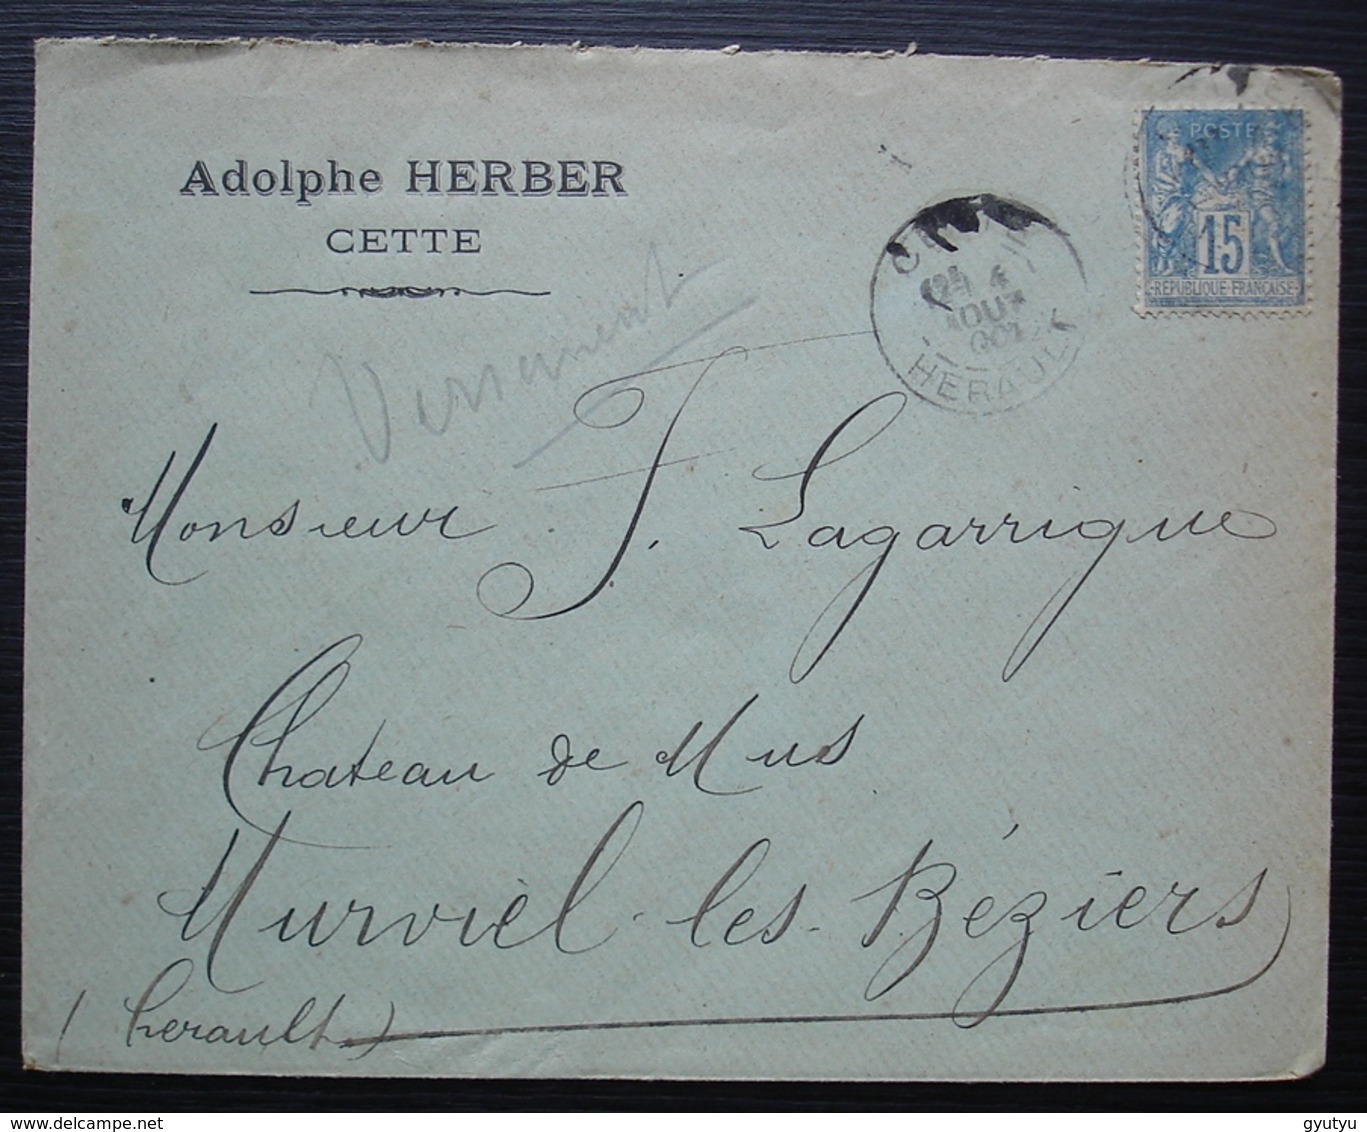 Adolphe HERBER
CETTE
Versement
POSTE
15
REPUBLIQUE FRANÇAISE
4
AOUT
HERAULT
Monsieur J. Lagarrigue
Chateau de Mus
Murviel-les-Béziers
(herault)
delcampe.net
gyutyu